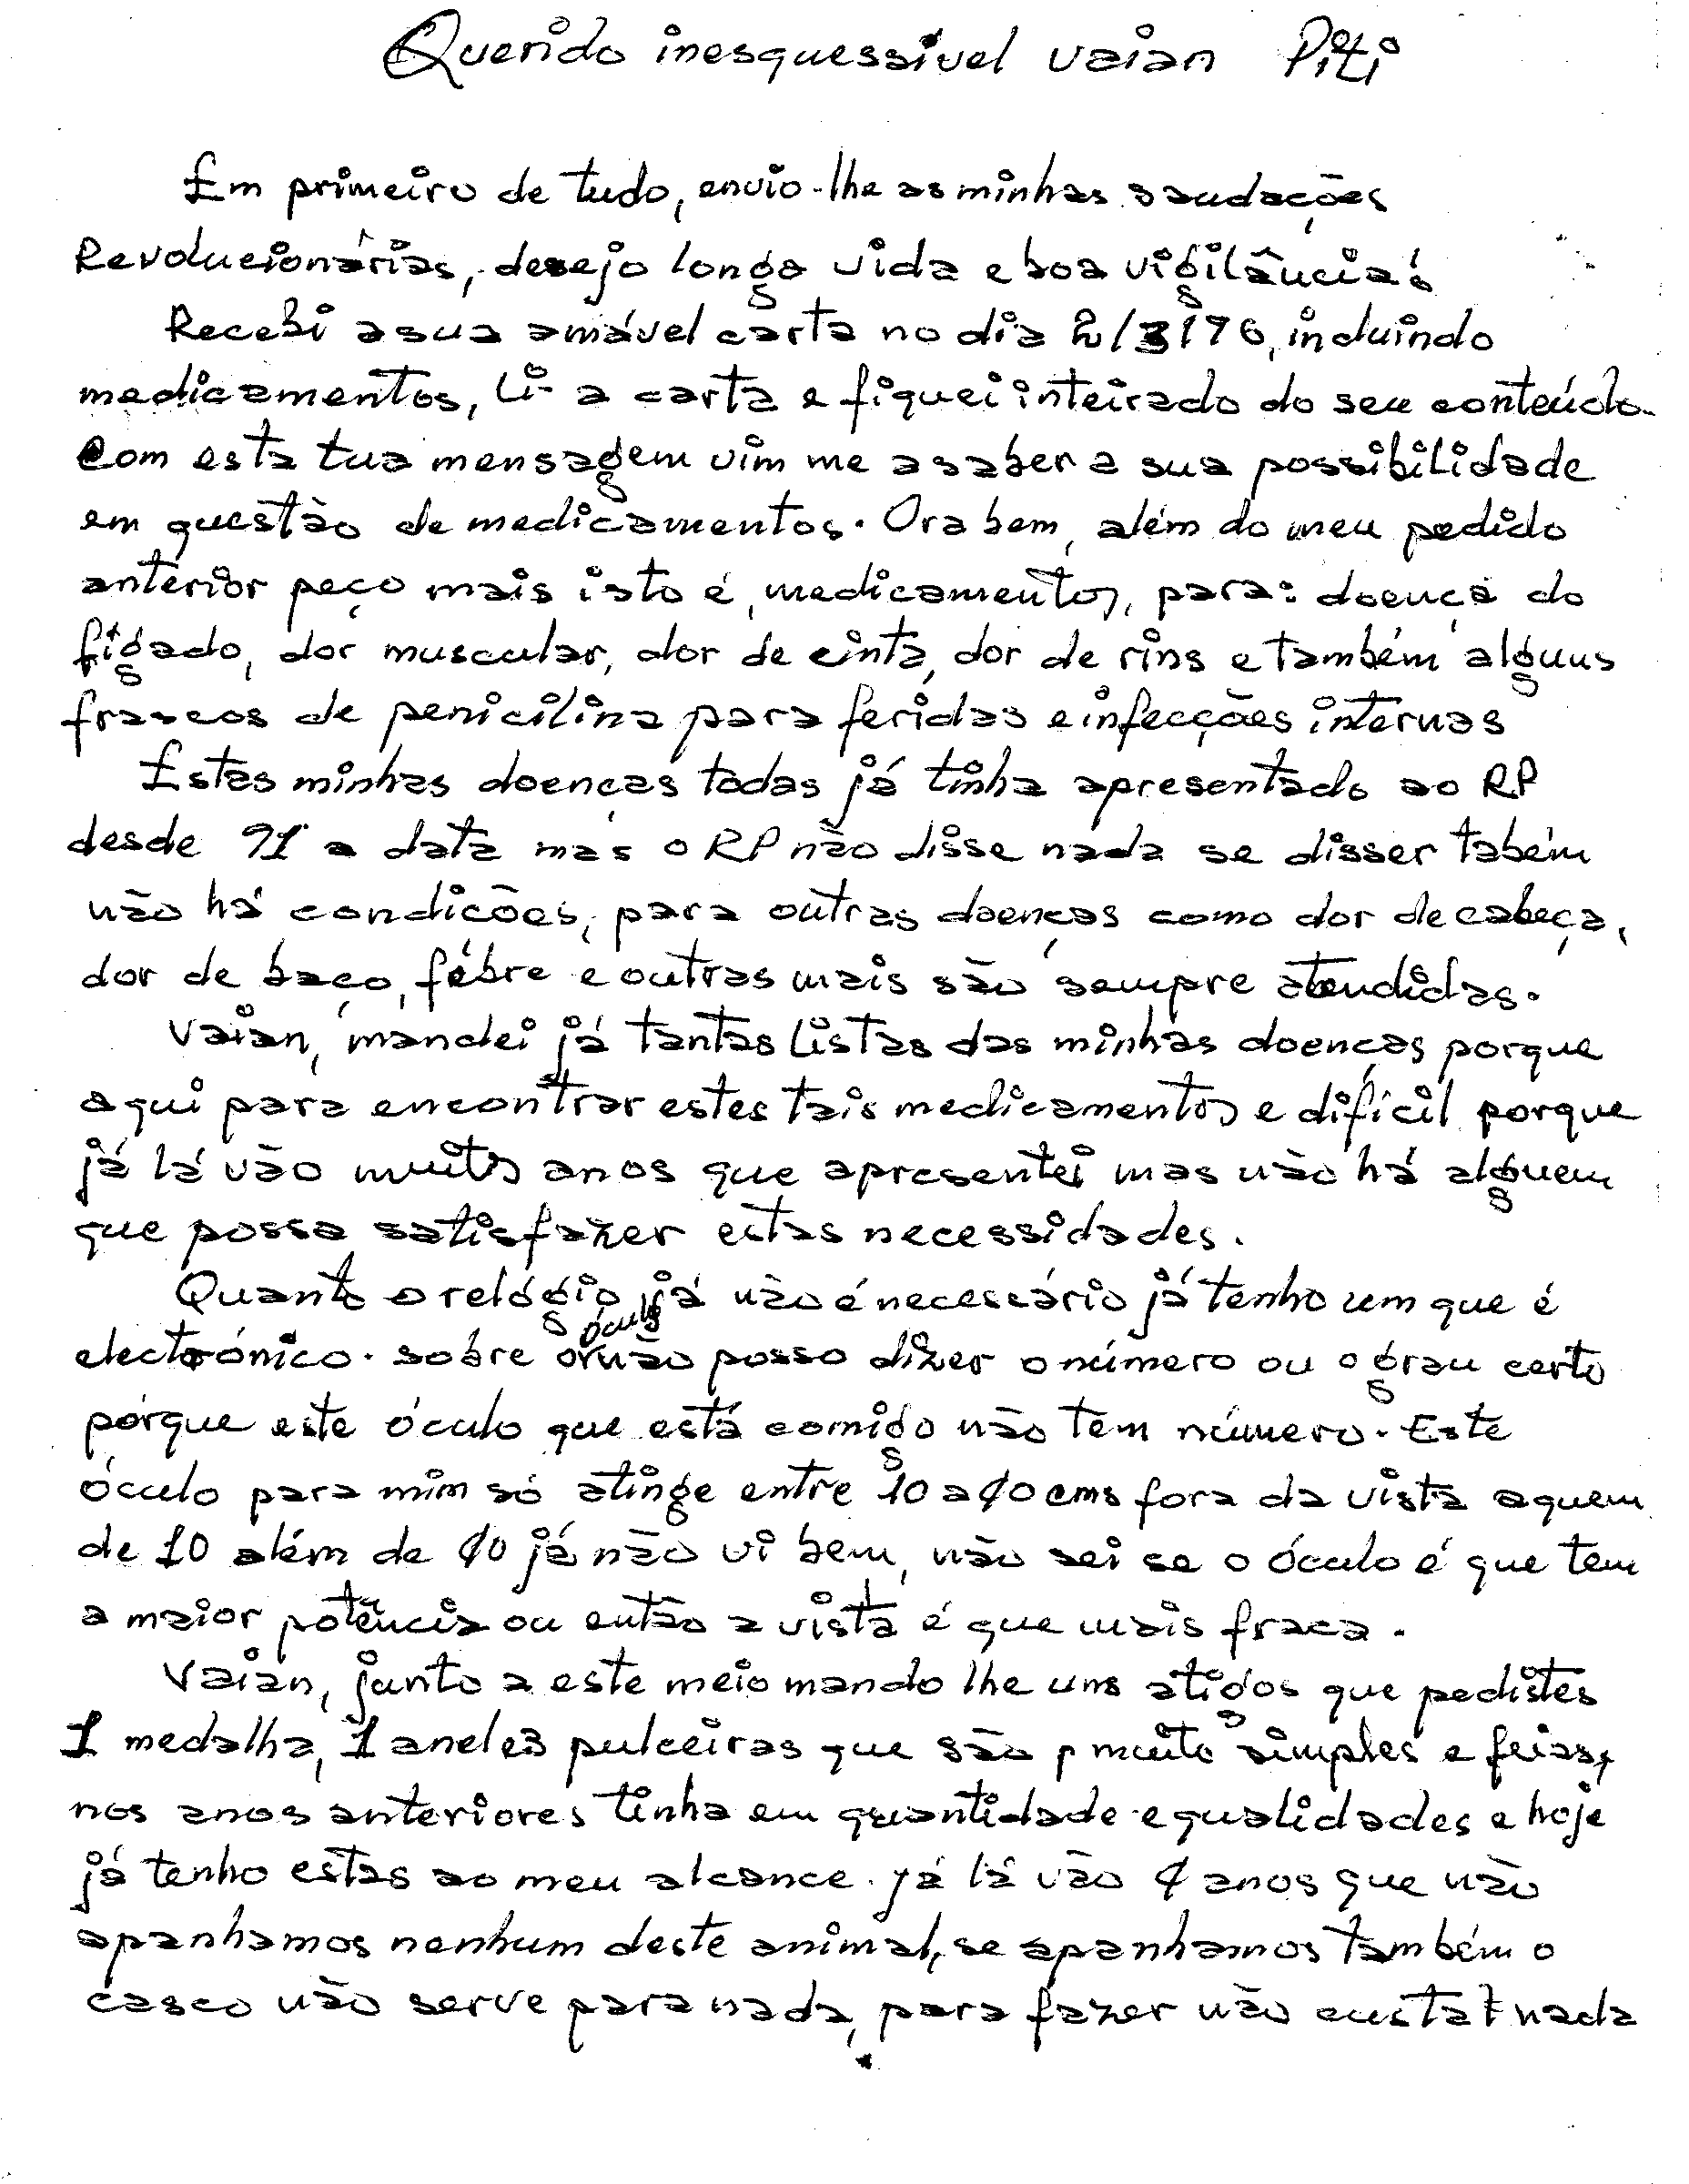 Querido inesquessivel vaian Piti
Em primeiro de tudo, envio-lhe as minhas saudações
Revolucionárias, desejo longa vida e boa vigilância!
Recebi a sua amável carta no dia 2/3/96, incluindo
medicamentos, li a carta e fiquei inteirado do seu conteúdo.
Com esta tua mensagem vim me a saber a sua possibilidade
em questão de medicamentos. Ora bem, além do meu pedido
anterior peço mais isto é, medicamentos, para: doença do
fígado, dor muscular, dor de cinta, dor de rins e também alguns
frascos de penicilina para feridas e infecções internas
Estas minhas doenças todas já tinha apresentado ao RP
desde 91 a data mas o RP não disse nada se disser tabém
não há condições, para outras doenças como dor de cabeça,
dor de baço, fébre e outras mais são sempre atendidas.
Vaian, mandei já tantas listas das minhas doenças porque
aqui para encontrar estes tais medicamentos e difícil porque
já lá vão muitos anos que apresentei mas não há alguem
que possa satisfazer estas necessidades.
Quanto o relógio já não é necessário já tenho um que é
electrónico. sobre óculo não posso dizer o número ou o grau certo
porque este óculo que está comigo não tem número. Este
óculo para mim só atinge entre 10 a 40 cms fora da vista aquem
de 10 além de 40 já não vi bem, não sei se o óculo é que tem
a maior potência ou então a vista é que mais fraca.
Vaian, junto a este meio mando lhe uns atigos que pedistes
1 medalha, 1 anel e pulceiras que são muito simples e feias,
nos anos anteriores tinha em quantidade e qualidades e hoje
já tenho estas ao meu alcance. já lá vão 4 anos que não
apanhamos nenhum deste animal, se apanhamos também o
casco não serve para nada, para fazer não custa nada